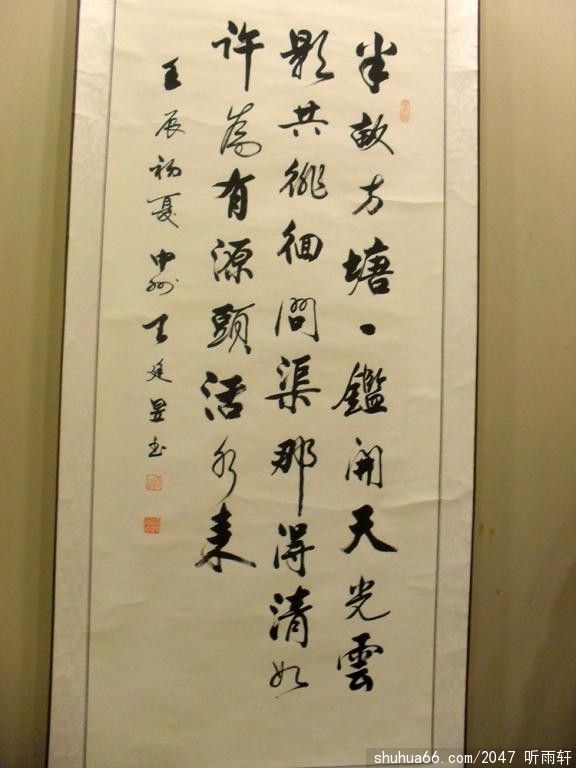 半畝方塘一鑑開天光雲
影共徘徊問渠那得清如
許為有源頭活水来
壬辰初夏中州王廷书
shuhua66.com/2047 听雨轩